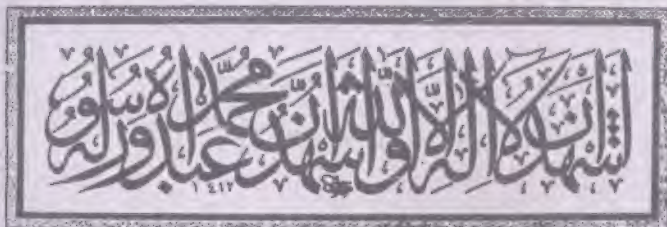 اشهد ان لا اله الا الله واشهد ان محمدا عبده ورسوله
١٤١٢